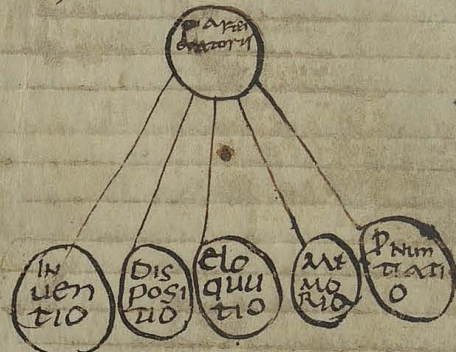 Partes
oratoris
IN
uen
tio
Dis
posi
tio
elo
quu
tio
Me
mo
ria
Pnun
tiati
o